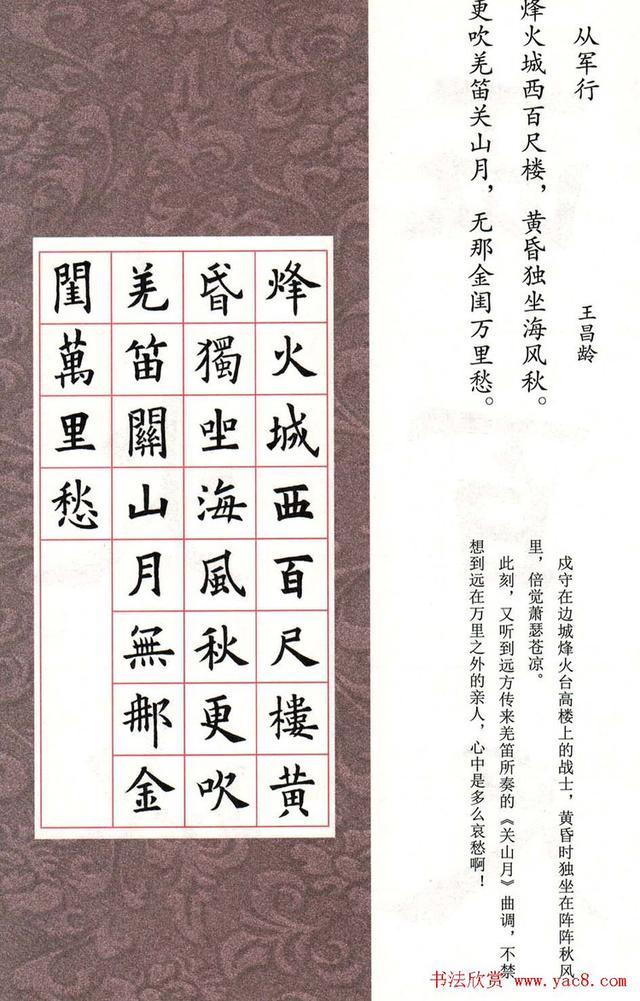 从军行
王昌龄
烽火城西百尺楼，黄昏独坐海风秋。
更吹羌笛关山月，无那金闺万里愁。
戍守在边城烽火台高楼上的战士，黄昏时独坐在阵阵秋风
里，倍觉萧瑟苍凉。
此刻，又听到远方传来羌笛所奏的《关山月》曲调，不禁
想到远在万里之外的亲人，心中是多么哀愁啊！
烽火城西百尺樓黃
昏獨坐海風秋更吹
羌笛關山月無那金
閨萬里愁
书法欣赏 www.yac8.com